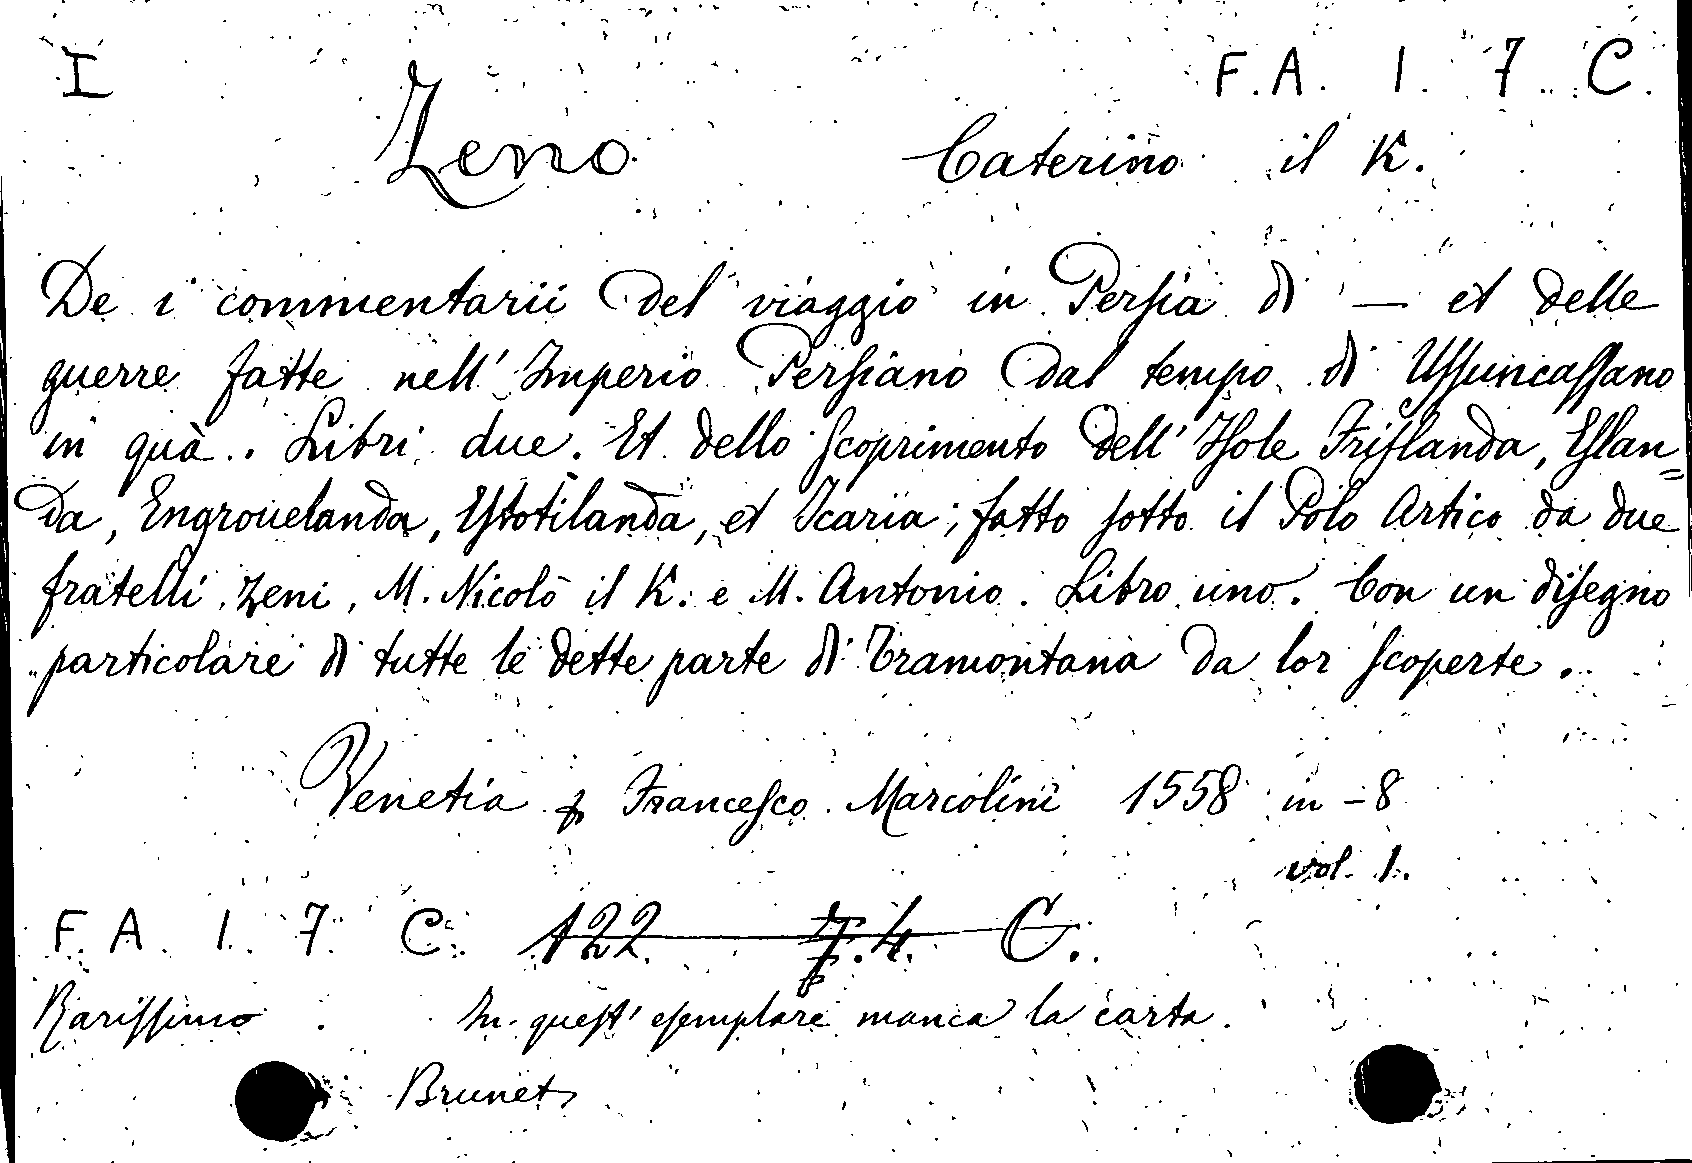 I F.A. 1. 7. C.
Zeno Caterino il K.
De i commentarii del viaggio in Persia di — et delle
guerre fatte nell' Imperio Persiano dal tempo di Ussuncassano
in quà.. Libri due. Et dello scoprimento dell' Isole Frislanda, Eslan=
da, Engrouelanda, Estotilanda, et Icaria; fatto sotto il Polo Artico da due
fratelli Zeni, M. Nicolò il K. e M. Antonio. Libro uno. Con un disegno
particolare di tutte le dette parte di Tramontana da lor scoperte.
Venetia Francesco Marcolini 1558 in-8
vol. 1.
F. A. 1. 7. C. 122 7.4. C.
Rarissimo. In quest' esemplare manca la carta.
Brunet